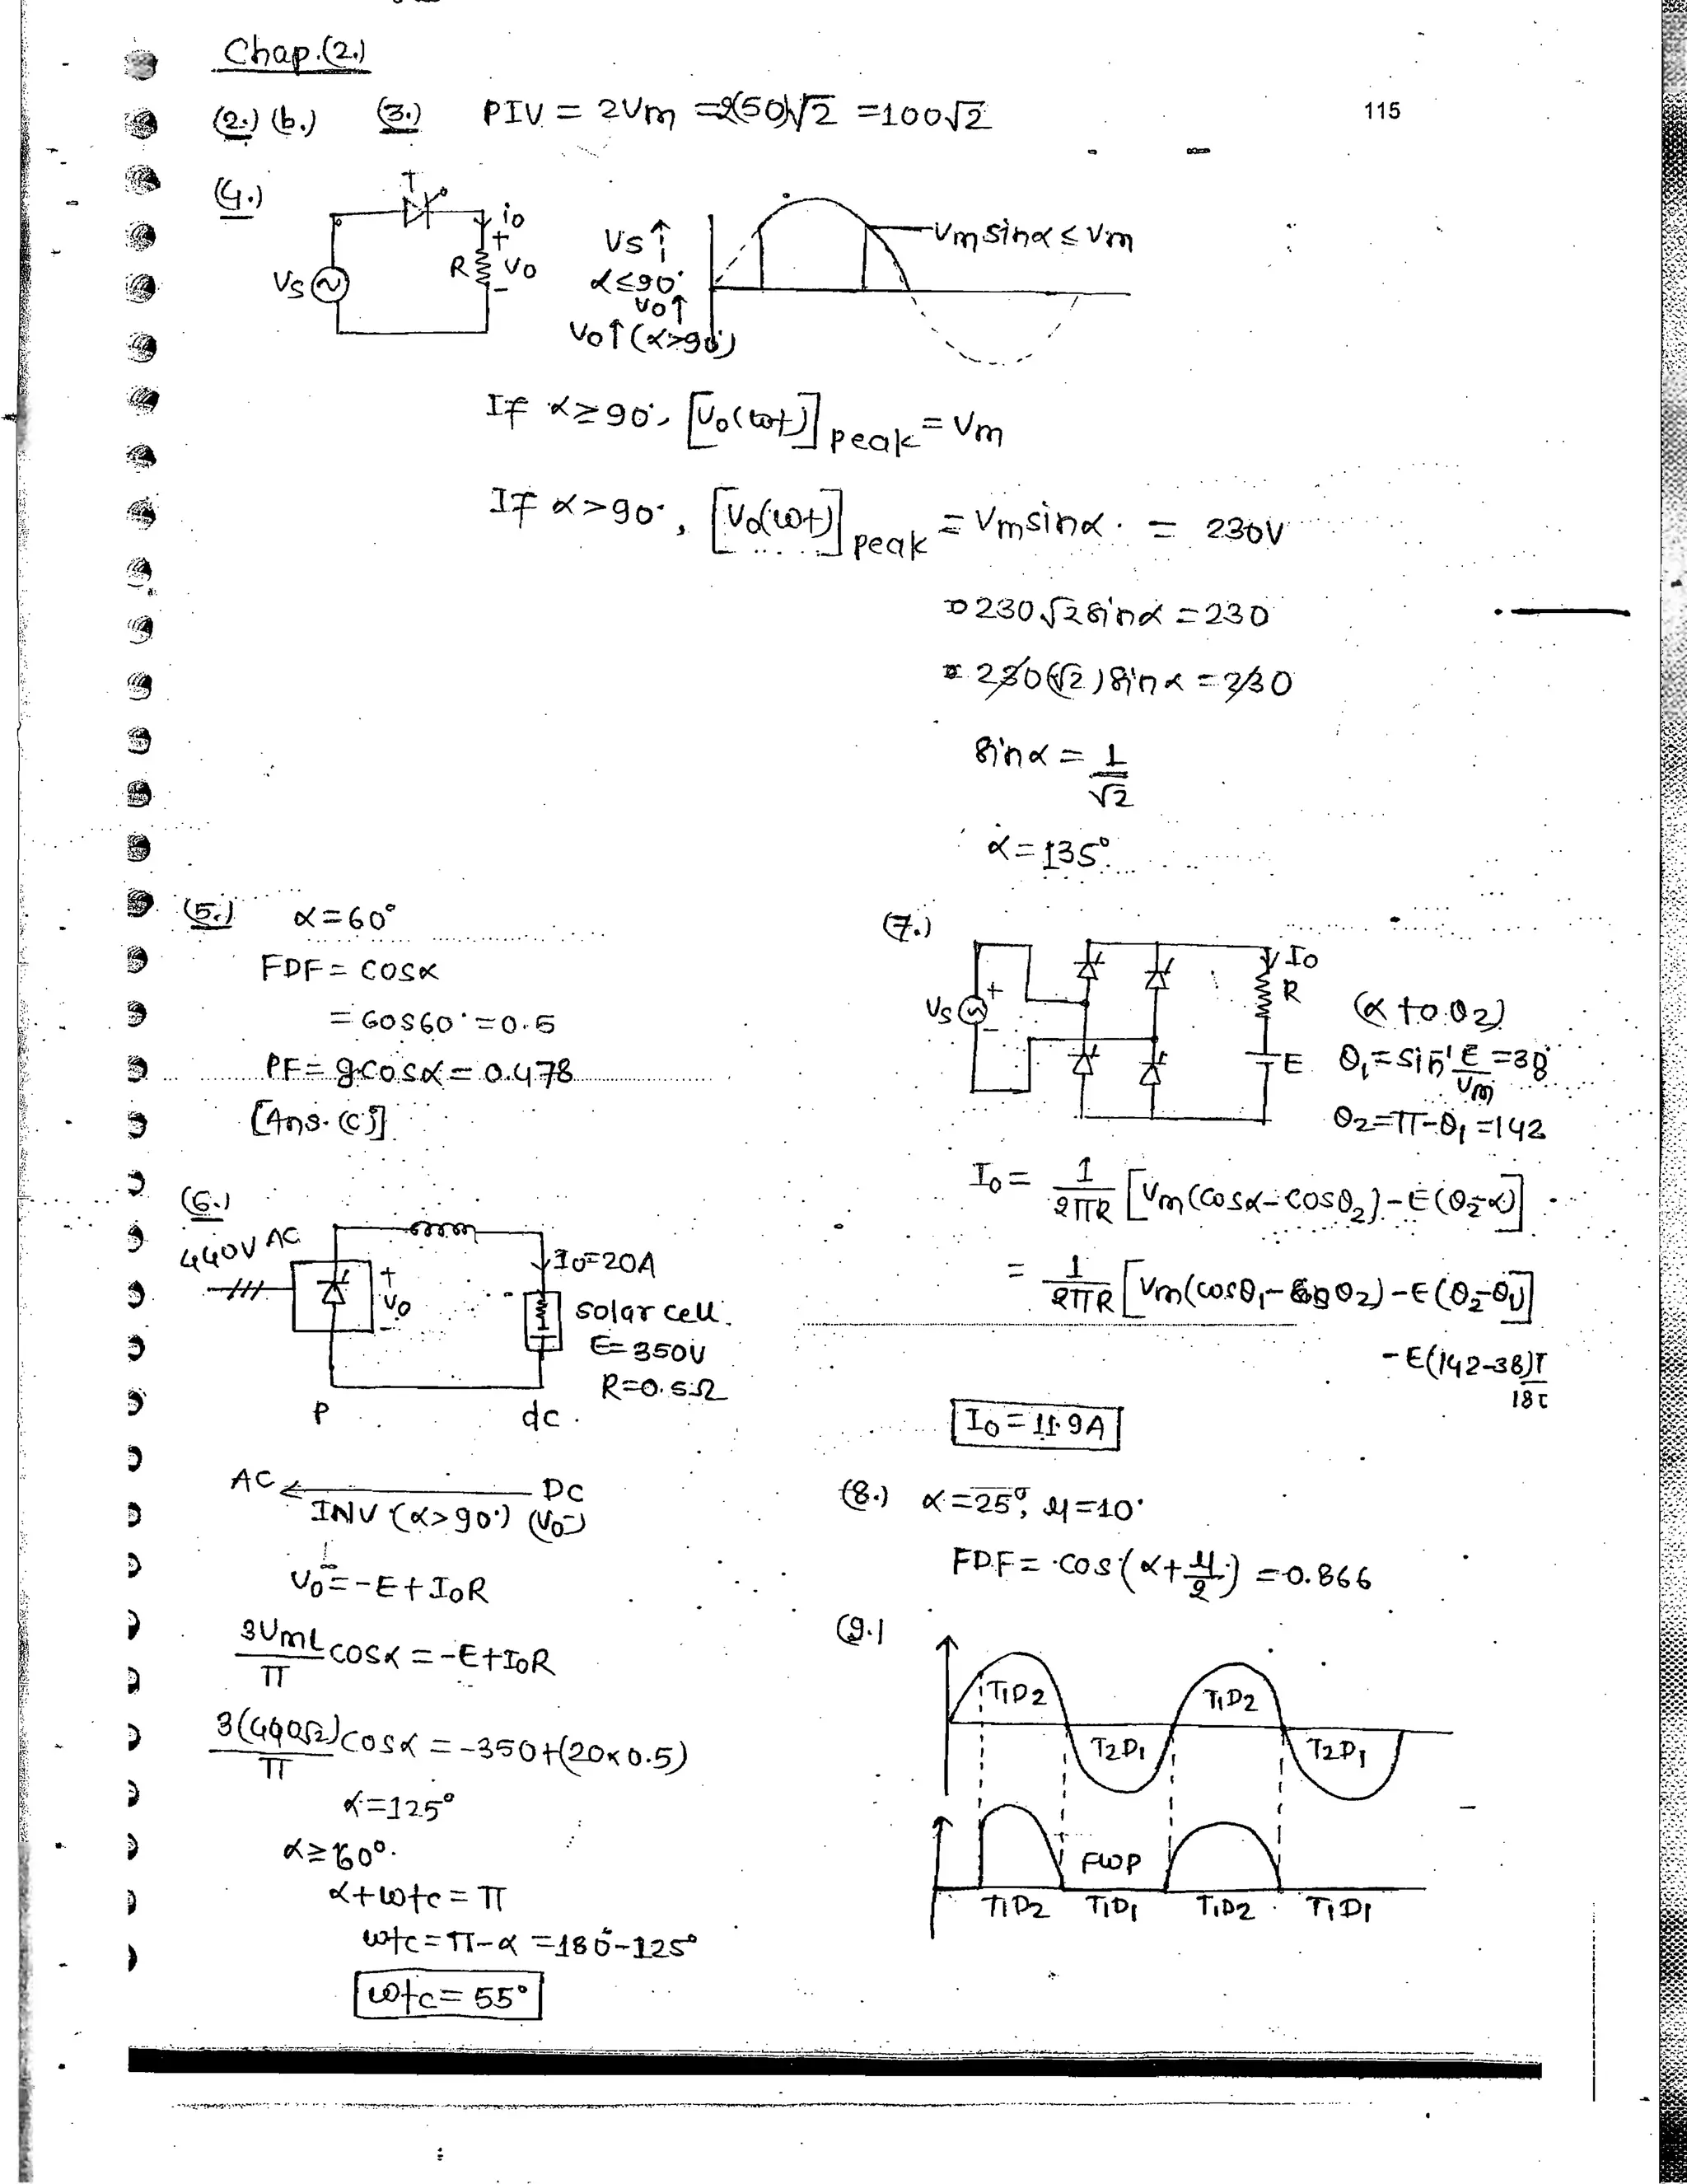 Chap.(2.)
(2.) (b.) (3.) PIV = 2Vm = 2(50)√2 = 100√2
115
(4.)
T
io
+
R Vo
-
Vs
Vs↑
α≤90°
Vo↑
Vo↑(α>90°)
Vm sinα ≤ Vm
If α≥90°, [Vo(ωt)]peak = Vm
If α>90°, [Vo(ωt)]peak = Vm sinα = 230V
230√2 sinα = 230
230(√2) sinα = 230
sinα = 1/√2
α = 135°
(5.) α = 60°
FDF = cosα
= cos60° = 0.5
PF = g cosα = 0.478
[Ans. (c)]
(6.)
440V AC
+
Vo
-
Io=20A
solar cell
E=350V
R=0.5Ω
P dc
AC ← DC
INV (α>90°) (Vo-)
Vo = -E+IoR
3VmL/π cosα = -E+IoR
3(440√2)/π cosα = -350+(20×0.5)
α=125°
α≥60°
α+ωtc = π
ωtc = π-α = 180°-125°
ωtc = 55°
(7.)
Vs
+
-
Io
R
E
(α to θ2)
θ1 = sin⁻¹ E/Vm = 38°
θ2 = π-θ1 = 142
Io = 1/2πR [Vm(cosα-cosθ2)-E(θ2-α)]
= 1/2πR [Vm(cosθ1-cosθ2)-E(θ2-θ1)]
-E(142-38)π/180
Io = 11.9A
(8.) α=25°, μ=10°
FDF = cos(α+μ/2) = 0.866
(9.)
T1D2 T1D2
T2D1 T2D1
FWP
T1D2 T1D1 T1D2 T1D1